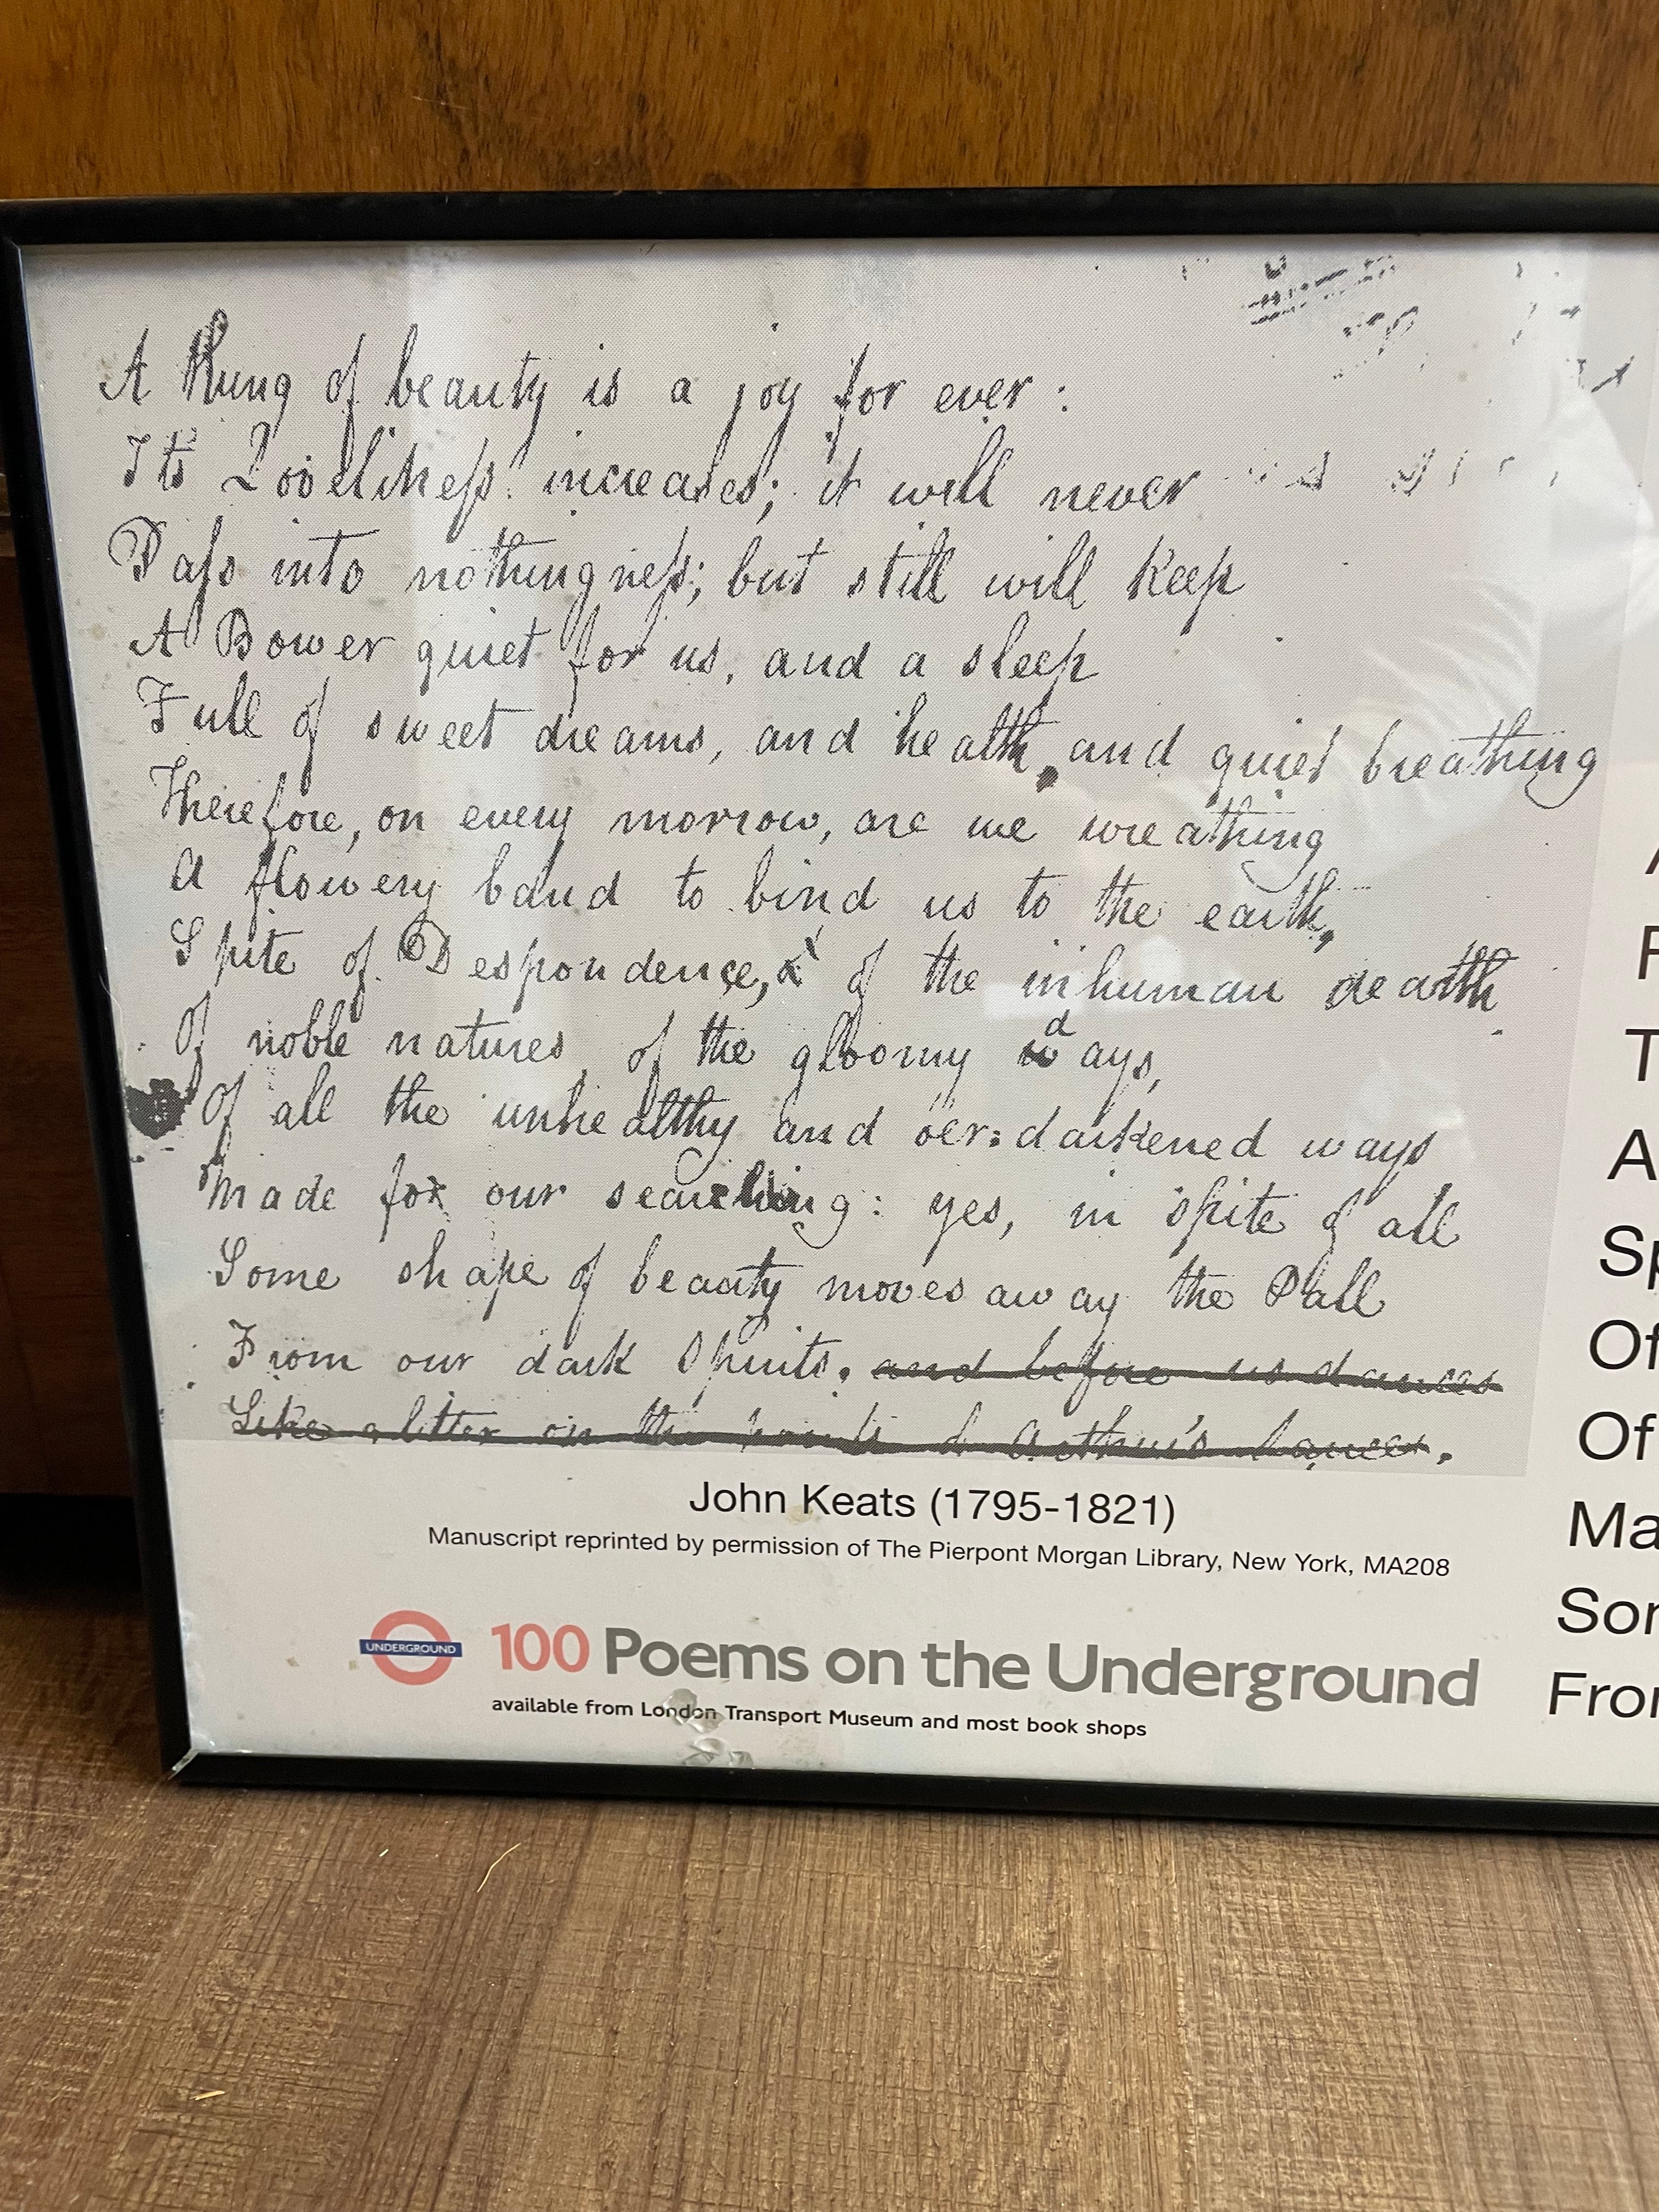 A thing of beauty is a joy for ever:
Its Loveliness increases; it will never
Pass into nothingness; but still will keep
A Bower quiet for us, and a sleep
Full of sweet dreams, and health, and quiet breathing
Therefore, on every morrow, are we wreathing
A flowery band to bind us to the earth,
Spite of Despondence, & of the inhuman dearth
Of noble natures, of the gloomy days,
Of all the unhealthy and o'er-darkened ways
Made for our searching: yes, in spite of all
Some shape of beauty moves away the Pall
From our dark Spirits. and before us dances
Like glitter on the points of Arthur's Lances.
John Keats (1795-1821)
Manuscript reprinted by permission of The Pierpont Morgan Library, New York, MA208
UNDERGROUND
100 Poems on the Underground
available from London Transport Museum and most book shops
A
F
T
A
Sp
Of
Of
Ma
Som
From